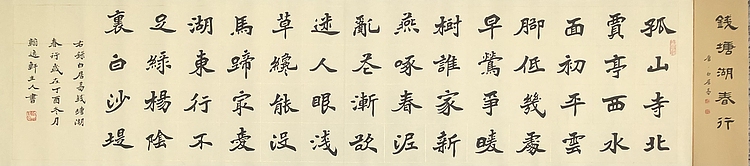 錢塘湖春行
唐 白居易
孤山寺北
賈亭西水
面初平雲
腳低幾處
早鶯爭暖
樹誰家新
燕啄春泥
亂花漸欲
迷人眼淺
草纔能沒
馬蹄㝡愛
湖東行不
足綠楊陰
裏白沙堤
右錄白居易錢塘湖
春行歲在丁酉冬月
翰逸軒主人書